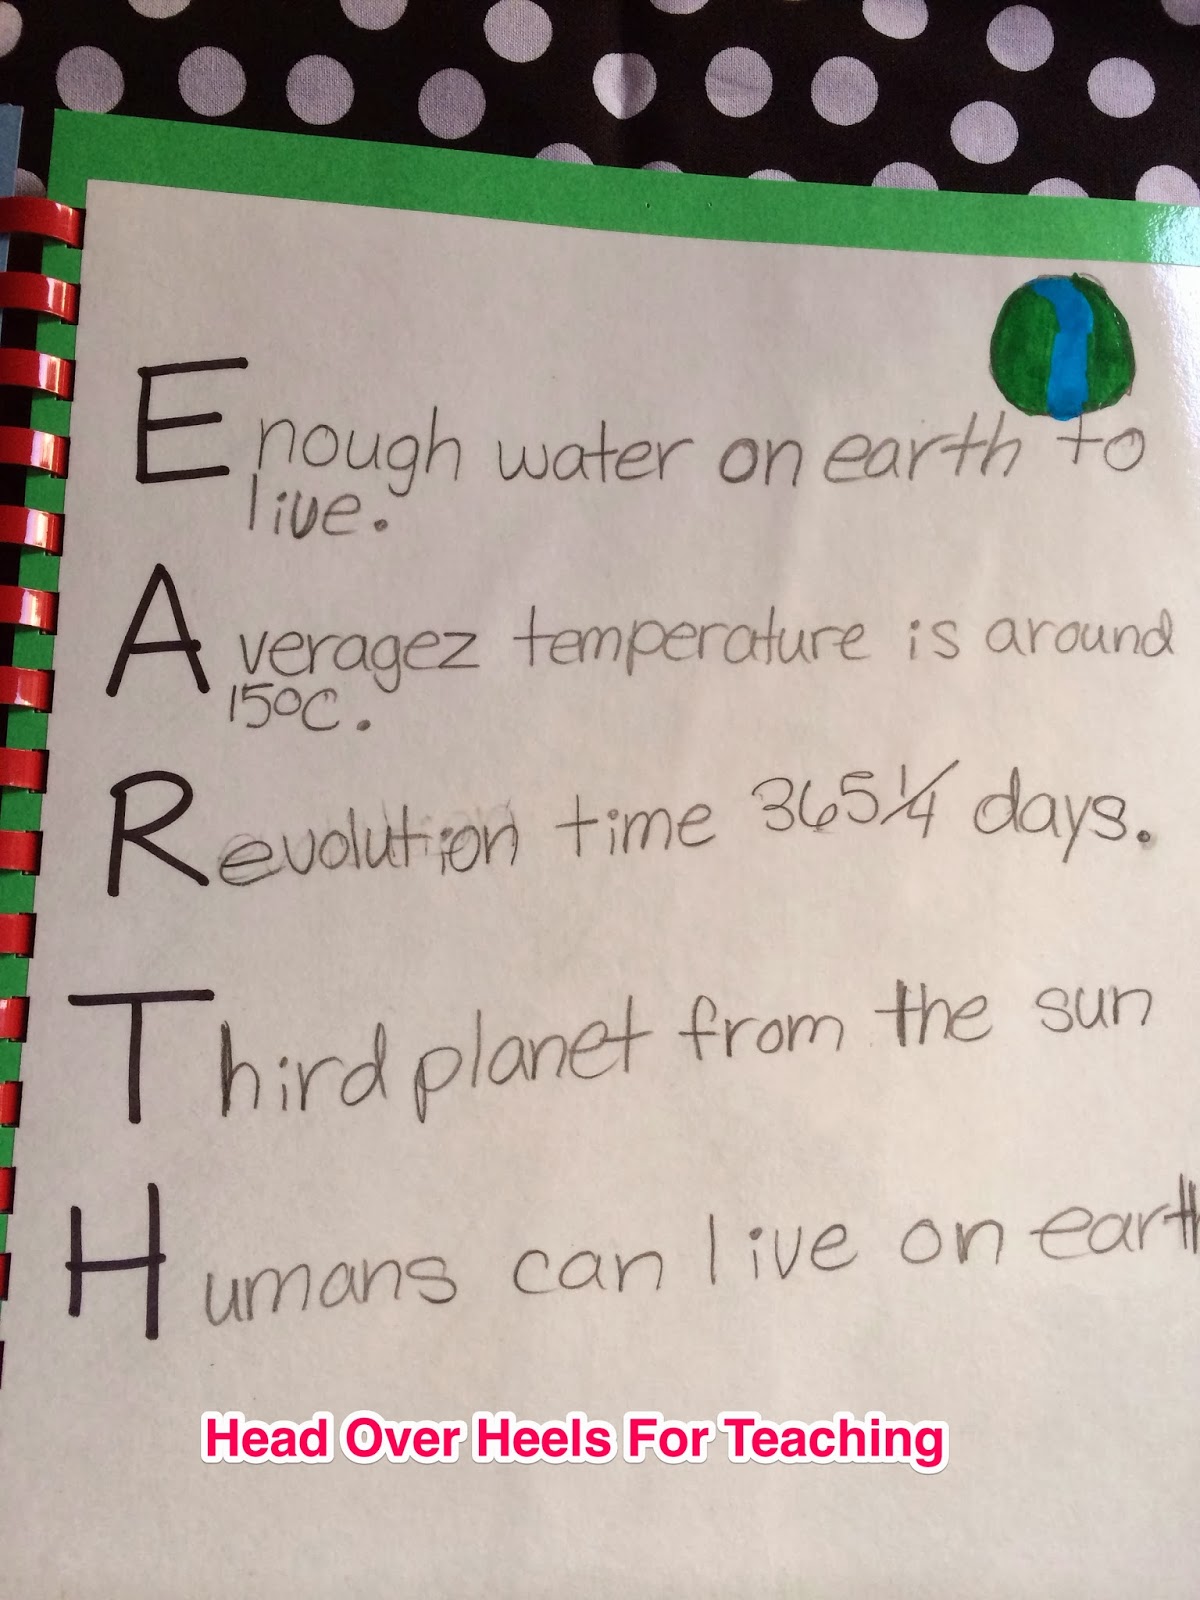 Enough water on earth to
live.
Averagez temperature is around
15°C.
Revolution time 365 1/4 days.
Third planet from the sun
Humans can live on earth
Head Over Heels For Teaching